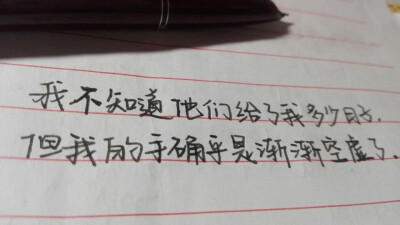 我不知道他们给了我多少日子.
但我的手确乎是渐渐空虚了.